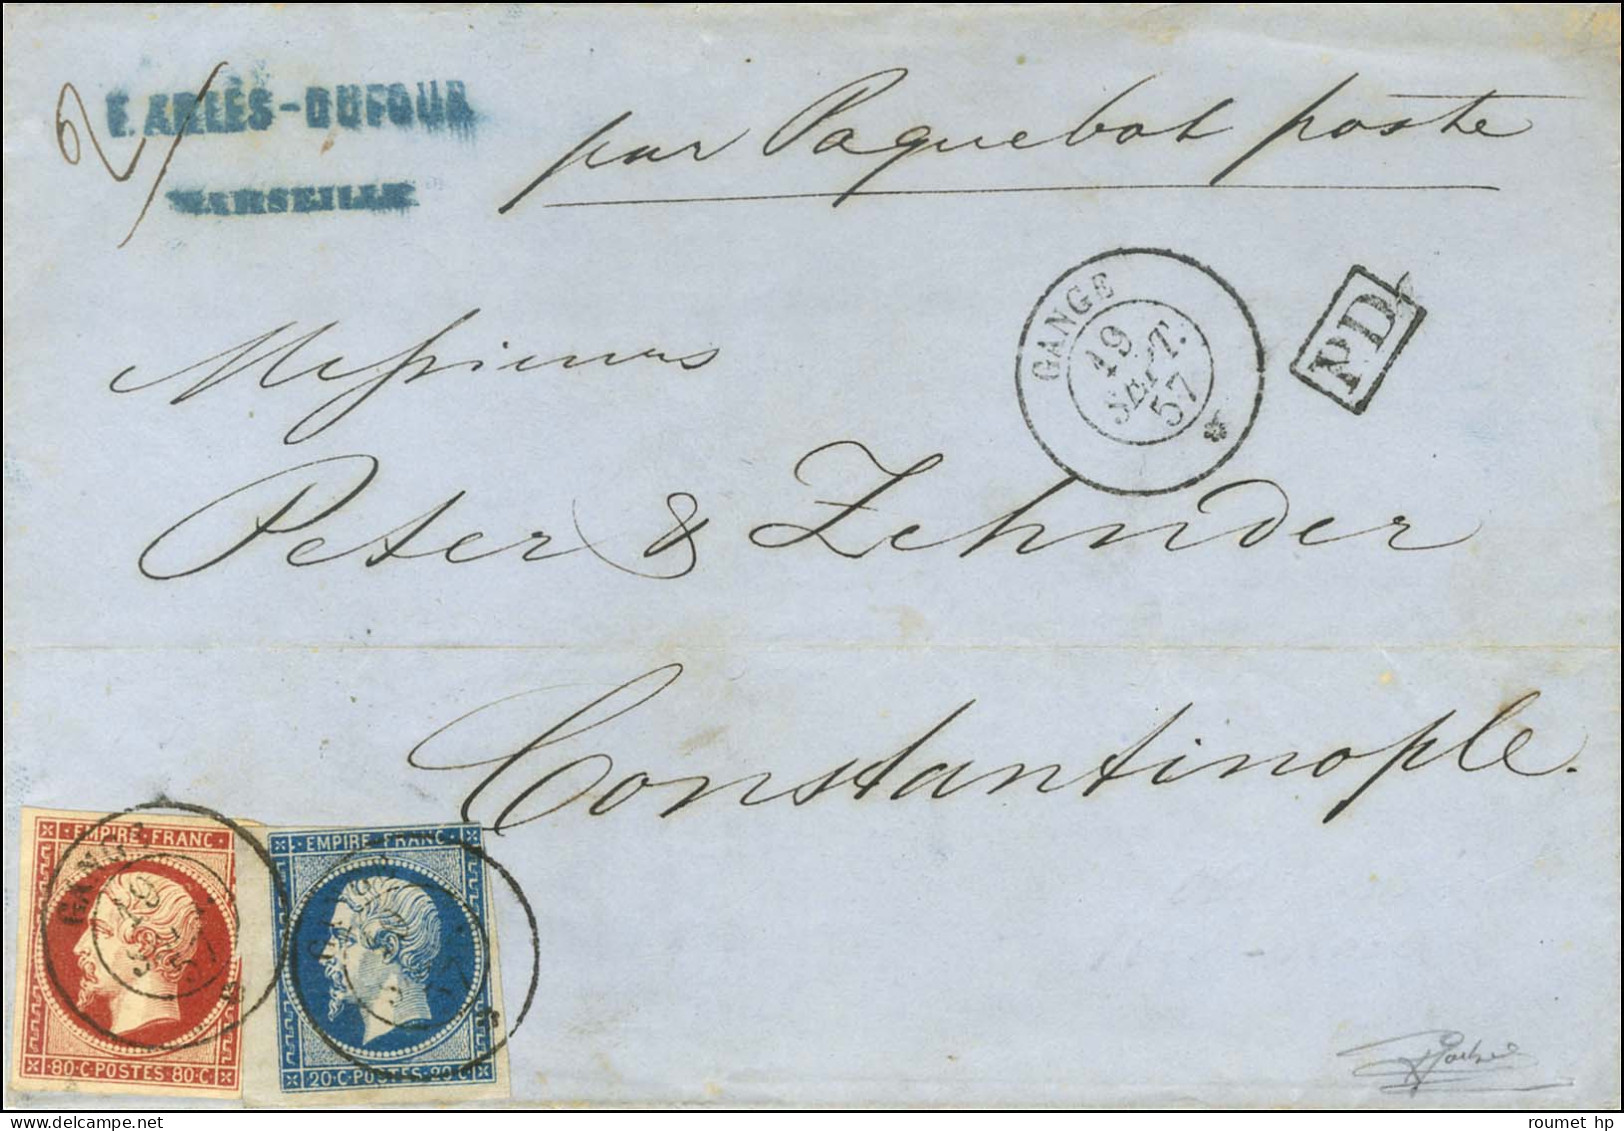 E. ARLÈS-DUFOUR
MARSEILLE
par Paquebot poste
GANGE
19
SEPT.
57
P.D.
Messieurs
Peter & Zehnder
Constantinople.
EMPIRE · FRANC ·
80·C·POSTES·80·C
GANGE
19
57
EMPIRE · FRANC ·
20·C·POSTES·20·C
GANGE
roumet hp